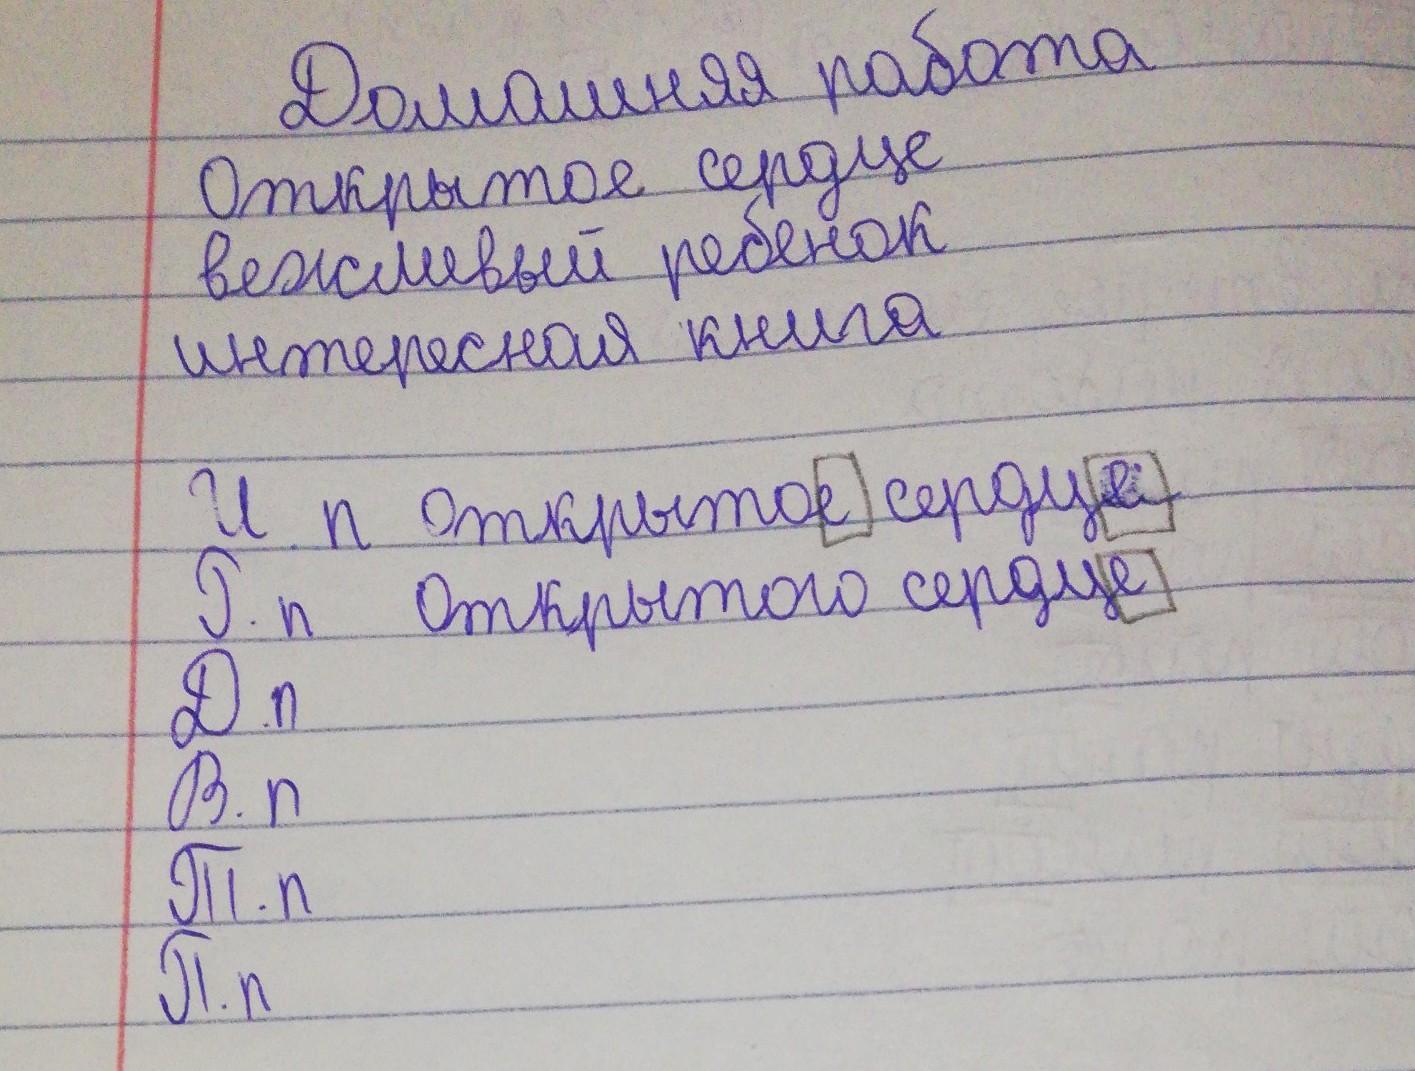 Домашняя работа
Открытое сердце
вежливый ребенок
интересная книга
И. п открытое сердце
Г. п Открытого сердце
Д. п
В. п
Т. п
П. п